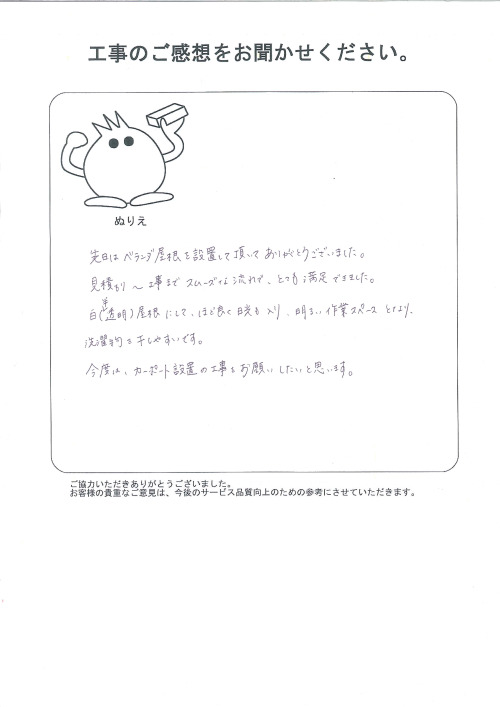 工事のご感想をお聞かせください。
ぬりえ
先日はベランダ屋根を設置して頂いてありがとうございました。
見積もり～工事までスムーズな流れで、とても満足できました。
白(半透明)屋根にして、ほど良く日光も入り、明るい作業スペースとなり、
洗濯物を干しやすいです。
今度は、カーポート設置の工事もお願いしたいと思います。
ご協力いただきありがとうございました。
お客様の貴重なご意見は、今後のサービス品質向上のための参考にさせていただきます。